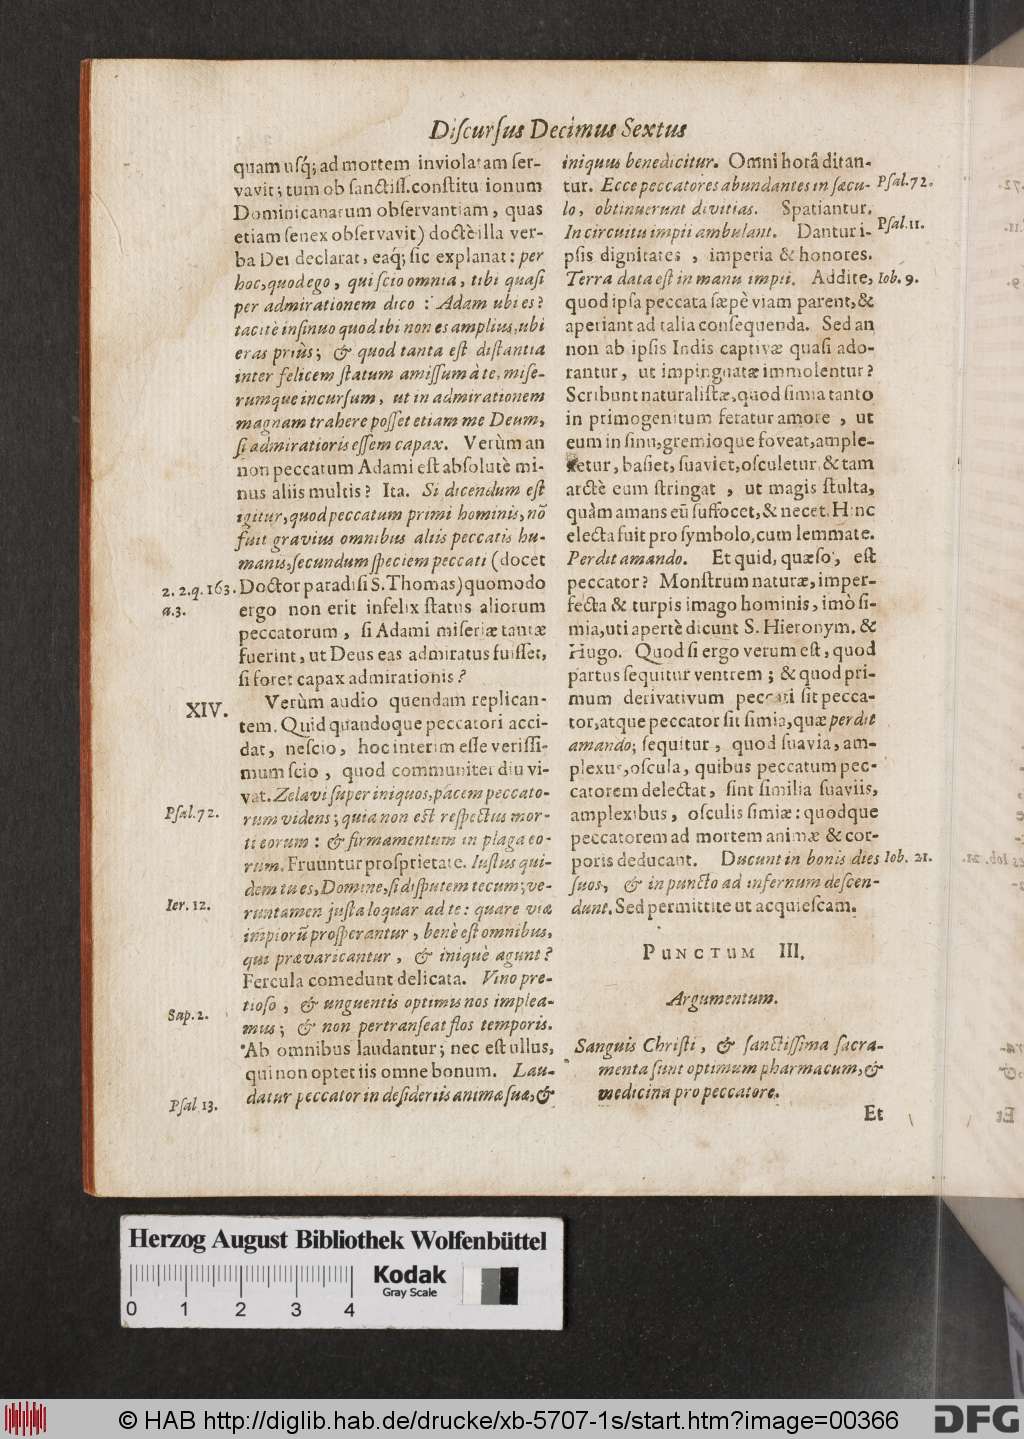 Discursus Decimus Sextus
quam usq́; ad mortem inviolatam ser-
vavit; tum ob sanctiss. constitutionum
Dominicanarum observantiam, quas
etiam senex observavit) doctè illa ver-
ba Dei declarat, eaq́; sic explanat: per
hoc, quod ego, qui scio omnia, tibi quasi
per admirationem dico: Adam ubi es?
tacitè insinuo quod ibi non es amplius, ubi
eras priùs; & quod tanta est distantia
inter felicem statum amissum à te, mise-
rumque incursum, ut in admirationem
magnam trahere posset etiam me Deum,
si admirationis essem capax. Verùm an
non peccatum Adami est absolutè mi-
nus aliis multis? Ita. Si dicendum est
igitur, quod peccatum primi hominis, nõ
fuit gravius omnibus aliis peccatis hu-
manis, secundum speciem peccati (docet
2. 2. q. 163. Doctor paradisi S. Thomas) quomodo
a. 3. ergo non erit infelix status aliorum
peccatorum, si Adami miseriæ tantæ
fuerint, ut Deus eas admiratus fuisset,
si foret capax admirationis?
XIV. Verùm audio quendam replican-
tem. Quid quandoque peccatori acci-
dat, nescio, hoc interim esse verissi-
mum scio, quod communiter diu vi-
vat. Zelavi super iniquos, pacem peccato-
Psal. 72. rum videns; quia non est respectus mor-
ti eorum: & firmamentum in plaga eo-
rum. Fruuntur prosprietate. Iustus qui-
dem tu es, Domine, si disputem tecum; ve-
Ier. 12. runtamen justa loquar ad te: quare via
impiorũ prosperantur, benè est omnibus,
qui prævaricantur, & iniquè agunt?
Fercula comedunt delicata. Vino pre-
tioso, & unguentis optimis nos implea-
Sap. 2. mus; & non pertranseat flos temporis.
Ab omnibus laudantur; nec est ullus,
qui non optet iis omne bonum. Lau-
Psal 13. datur peccator in desideriis animæ suæ, &
iniquus benedicitur. Omni horâ ditan-
tur. Ecce peccatores abundantes in sæcu- Psal. 72.
lo, obtinuerunt divitias. Spatiantur.
In circuitu impii ambulant. Dantur i- Psal. 11.
psis dignitates, imperia & honores.
Terra data est in manu impii. Addite, Iob. 9.
quod ipsa peccata sæpè viam parent, &
aperiant ad talia consequenda. Sed an
non ab ipsis Indis captivæ quasi ado-
rantur, ut impinguatæ immolentur?
Scribunt naturalistæ, quod simia tanto
in primogenitum feratur amore, ut
eum in sinu, gremioque foveat, ample-
ctetur, basiet, suaviet, osculetur, & tam
arctè eum stringat, ut magis stulta,
quàm amans eũ suffocet, & necet. Hinc
electa fuit pro symbolo, cum lemmate.
Perdit amando. Et quid, quæso, est
peccator? Monstrum naturæ, imper-
fecta & turpis imago hominis, imò si-
mia, uti apertè dicunt S. Hieronym. &
Hugo. Quod si ergo verum est, quod
partus sequitur ventrem; & quod pri-
mum derivativum peccati sit pecca-
tor, atque peccator sit simia, quæ perdit
amando; sequitur, quod suavia, am-
plexus, oscula, quibus peccatum pec-
catorem delectat, sint similia suaviis,
amplexibus, osculis simiæ: quodque
peccatorem ad mortem animæ & cor-
poris deducant. Ducunt in bonis dies Iob. 21.
suos, & in puncto ad infernum descen-
dunt. Sed permittite ut acquiescam.
PUNCTUM III.
Argumentum.
Sanguis Christi, & sanctissima sacra-
menta sunt optimum pharmacum, &
medicina pro peccatore.
Et
Herzog August Bibliothek Wolfenbüttel
Kodak
Gray Scale
0 1 2 3 4
© HAB http://diglib.hab.de/drucke/xb-5707-1s/start.htm?image=00366
DFG